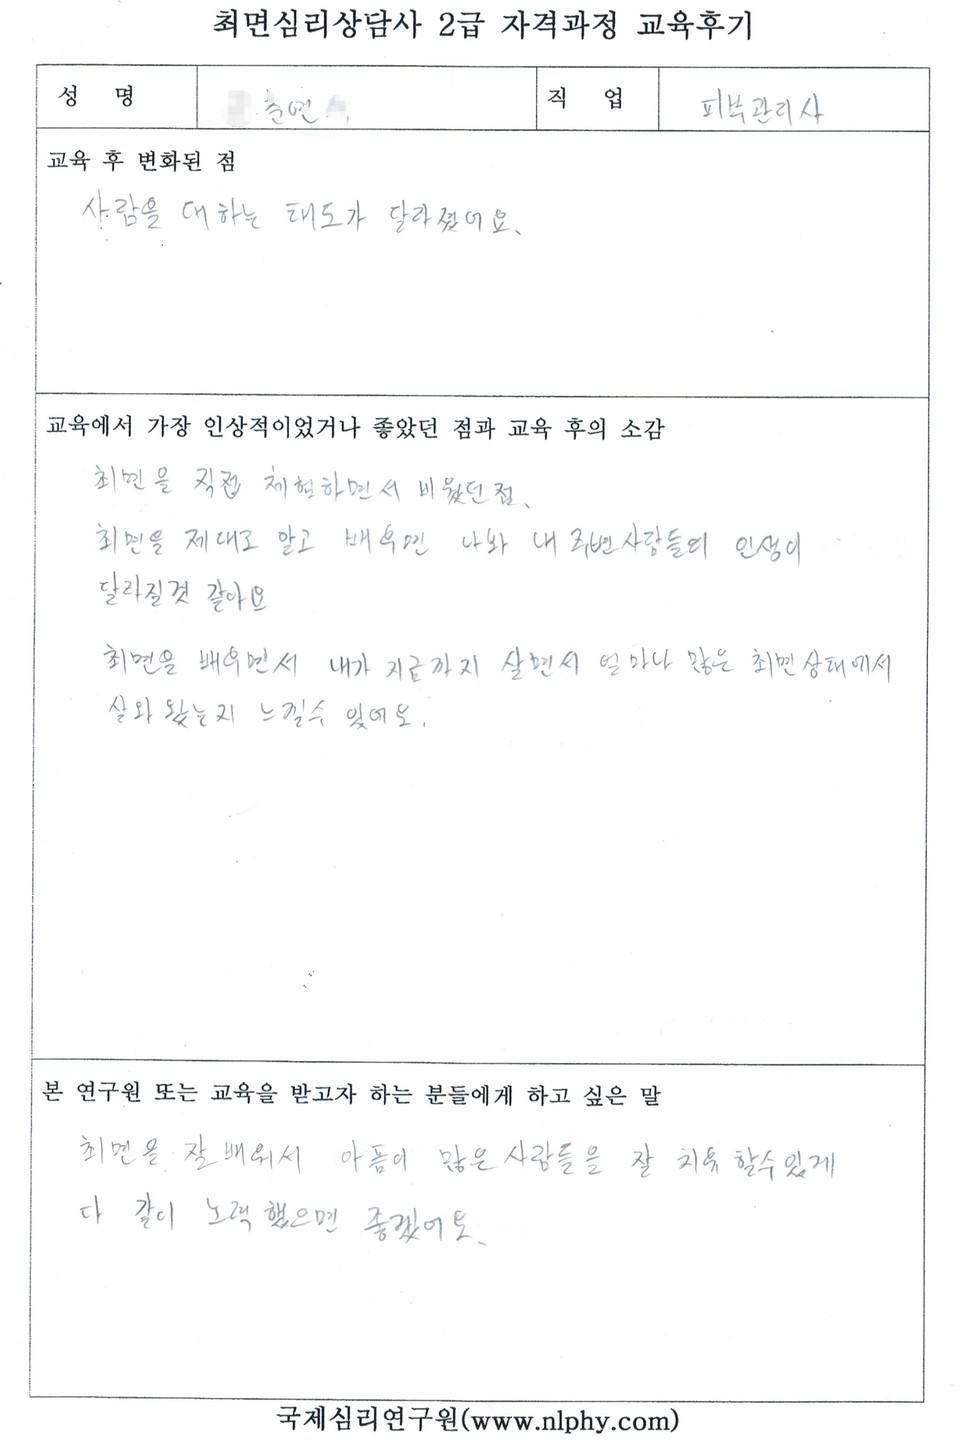 최면심리상담사 2급 자격과정 교육후기
성 명
직 업 피부관리사
교육 후 변화된 점
사람을 대하는 태도가 달라졌어요.
교육에서 가장 인상적이었거나 좋았던 점과 교육 후의 소감
최면을 직접 체험하면서 배웠던점.
최면을 제대로 알고 배우면 나와 내 주변사람들의 인생이
달라질것 같아요
최면을 배우면서 내가 지금까지 살면서 얼마나 많은 최면상태에서
살와 왔는지 느낄수 있어요.
본 연구원 또는 교육을 받고자 하는 분들에게 하고 싶은 말
최면을 잘 배워서 아픔이 많은 사람들을 잘 치유 할수있게
다 같이 노력했으면 좋겠어요.
국제심리연구원(www.nlphy.com)